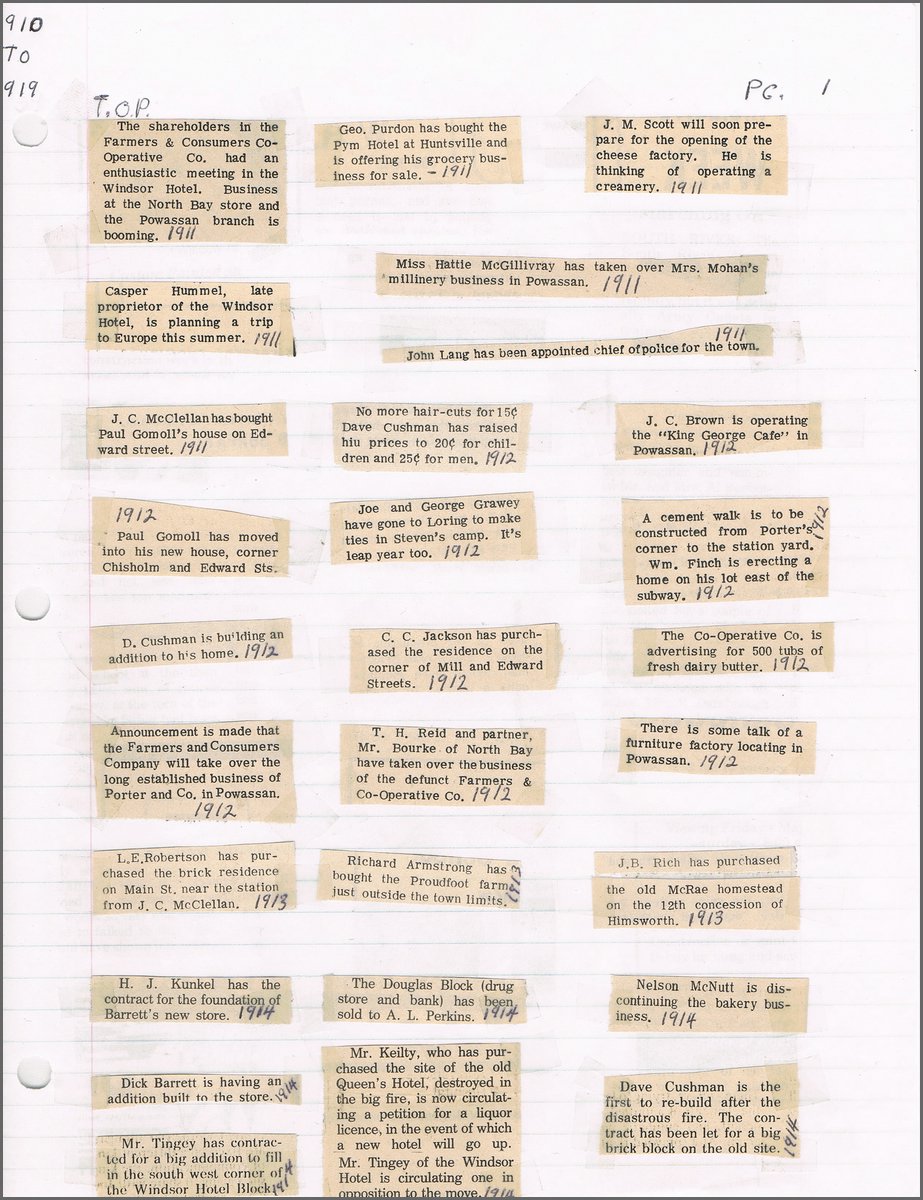 910
TO
919
T.O.P.
PG. 1
The shareholders in the
Farmers & Consumers Co-
Operative Co. had an
enthusiastic meeting in the
Windsor Hotel. Business
at the North Bay store and
the Powassan branch is
booming. 1911
Geo. Purdon has bought the
Pym Hotel at Huntsville and
is offering his grocery bus-
iness for sale. - 1911
J. M. Scott will soon pre-
pare for the opening of the
cheese factory. He is
thinking of operating a
creamery. 1911
Miss Hattie McGillivray has taken over Mrs. Mohan's
millinery business in Powassan. 1911
Casper Hummel, late
proprietor of the Windsor
Hotel, is planning a trip
to Europe this summer. 1911
1911
John Lang has been appointed chief of police for the town.
J. C. McClellan has bought
Paul Gomoll's house on Ed-
ward street. 1911
No more hair-cuts for 15¢
Dave Cushman has raised
hiu prices to 20¢ for chil-
dren and 25¢ for men. 1912
J. C. Brown is operating
the "King George Cafe" in
Powassan. 1912
1912
Paul Gomoll has moved
into his new house, corner
Chisholm and Edward Sts.
Joe and George Grawey
have gone to Loring to make
ties in Steven's camp. It's
leap year too. 1912
A cement walk is to be
constructed from Porter's
corner to the station yard. 1912
Wm. Finch is erecting a
home on his lot east of the
subway. 1912
D. Cushman is building an
addition to his home. 1912
C. C. Jackson has purch-
ased the residence on the
corner of Mill and Edward
Streets. 1912
The Co-Operative Co. is
advertising for 500 tubs of
fresh dairy butter. 1912
Announcement is made that
the Farmers and Consumers
Company will take over the
long established business of
Porter and Co. in Powassan.
1912
T. H. Reid and partner,
Mr. Bourke of North Bay
have taken over the business
of the defunct Farmers &
Co-Operative Co. 1912
There is some talk of a
furniture factory locating in
Powassan. 1912
L.E.Robertson has pur-
chased the brick residence
on Main St. near the station
from J. C. McClellan. 1913
Richard Armstrong has
bought the Proudfoot farm
just outside the town limits. 1913
J.B. Rich has purchased
the old McRae homestead
on the 12th concession of
Himsworth. 1913
H. J. Kunkel has the
contract for the foundation of
Barrett's new store. 1914
The Douglas Block (drug
store and bank) has been
sold to A. L. Perkins. 1914
Nelson McNutt is dis-
continuing the bakery bus-
iness. 1914
Dick Barrett is having an
addition built to the store. 1914
Mr. Keilty, who has pur-
chased the site of the old
Queen's Hotel, destroyed in
the big fire, is now circulat-
ing a petition for a liquor
licence, in the event of which
a new hotel will go up.
Mr. Tingey of the Windsor
Hotel is circulating one in
opposition to the move. 1914
Dave Cushman is the
first to re-build after the
disastrous fire. The con-
tract has been let for a big
brick block on the old site. 1914
Mr. Tingey has contrac-
ted for a big addition to fill
in the south west corner of
the Windsor Hotel Block 1914